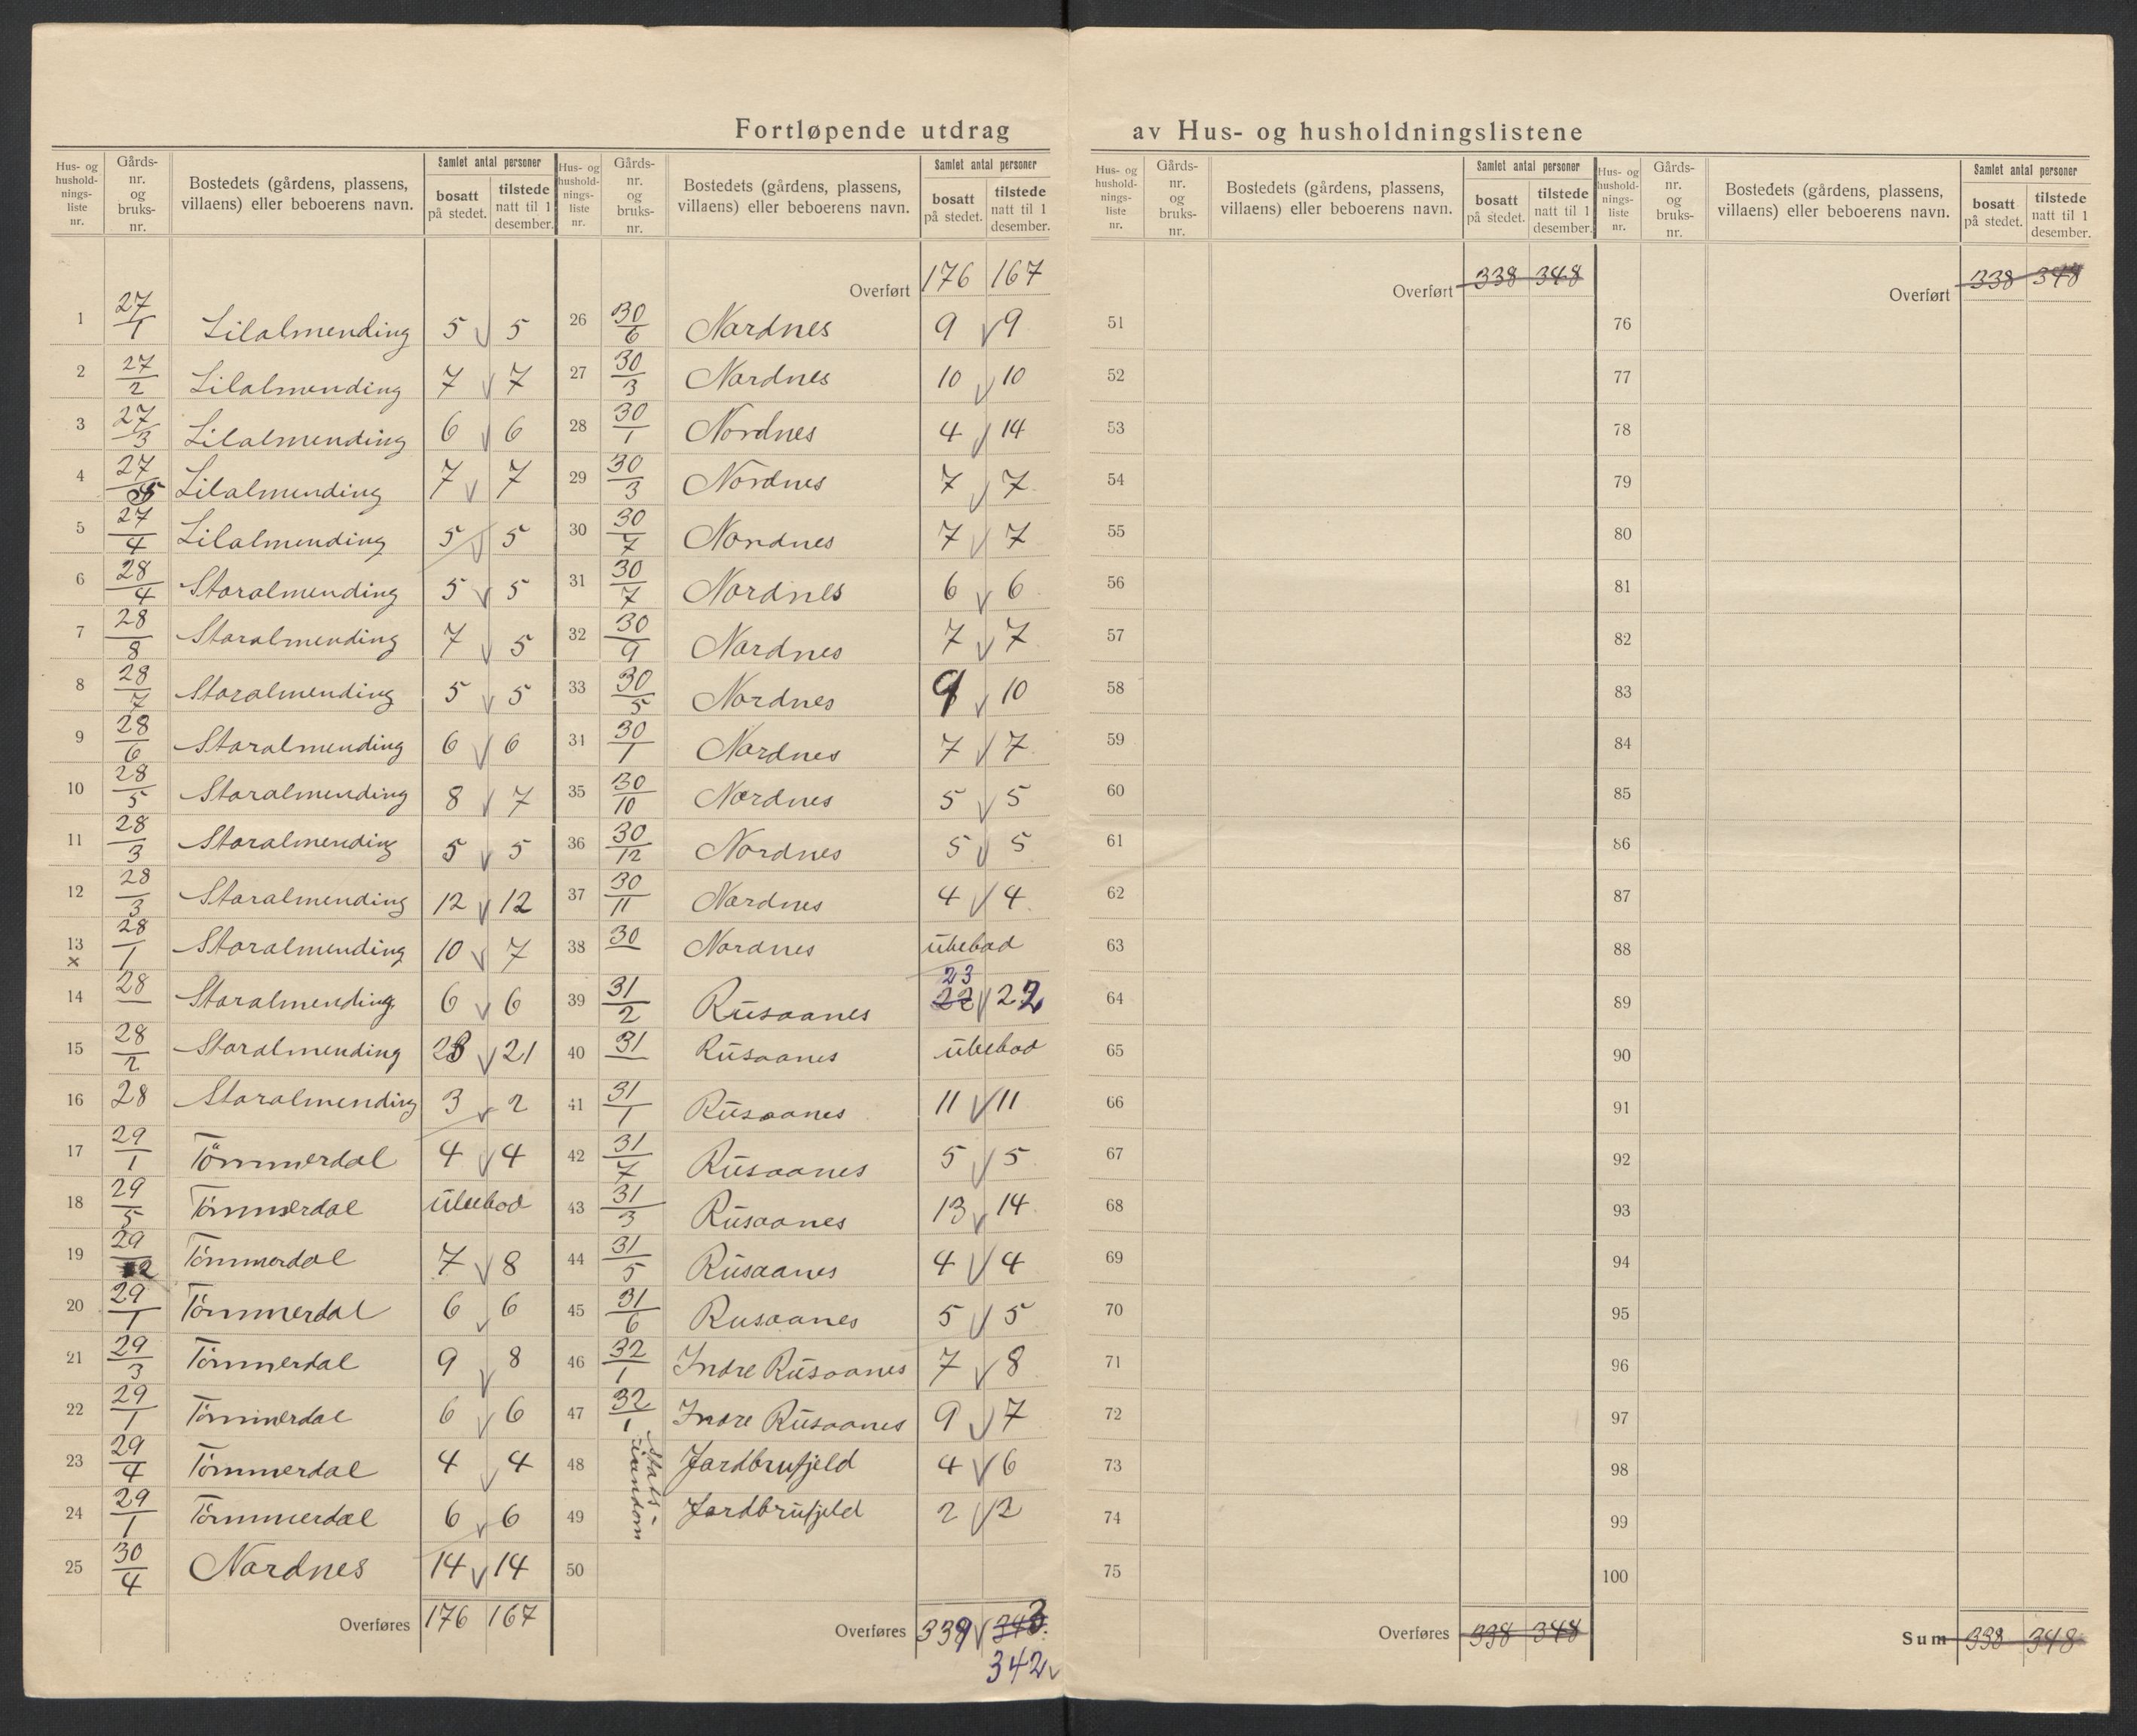 Fortløpende utdrag av Hus- og husholdningslistene
Hus- og hushold-nings-liste nr. Gårds-nr. og bruks-nr. Bostedets (gårdens, plassens, villaens) eller beboerens navn. Samlet antal personer bosatt på stedet. tilstede natt til 1 desember.
1 27/1 Lilalmending 5 v 5
2 27/2 Lilalmending 7 v 7
3 27/3 Lilalmending 6 v 6
4 27/5 Lilalmending 7 v 7
5 27/4 Lilalmending 5 v 5
6 28/4 Storalmending 5 v 5
7 28/8 Storalmending 7 v 5
8 28/7 Storalmending 5 v 5
9 28/6 Storalmending 6 v 6
10 28/5 Storalmending 8 v 7
11 28/3 Storalmending 5 v 5
12 28/3 Storalmending 12 v 12
13 x 28/1 Storalmending 10 v 7
14 28/ Storalmending 6 v 6
15 28/2 Storalmending 23 v 21
16 28 Storalmending 3 v 2
17 29/1 Tömmerdal 4 v 4
18 29/5 Tömmerdal ubebod
19 29/2 Tömmerdal 7 v 8
20 29/1 Tömmerdal 6 v 6
21 29/3 Tömmerdal 9 v 8
22 29/1 Tömmerdal 6 v 6
23 29/4 Tömmerdal 4 v 4
24 29/1 Tömmerdal 6 v 6
25 30/4 Nordnes 14 v 14
Overføres 176 167
Hus- og hushold-nings-liste nr. Gårds-nr. og bruks-nr. Bostedets (gårdens, plassens, villaens) eller beboerens navn. Samlet antal personer bosatt på stedet. tilstede natt til 1 desember.
Overført 176 167
26 30/6 Nordnes 9 v 9
27 30/3 Nordnes 10 v 10
28 30/1 Nordnes 4 v 14
29 30/3 Nordnes 7 v 7
30 30/7 Nordnes 7 v 7
31 30/7 Nordnes 6 v 6
32 30/9 Nordnes 7 v 7
33 30/5 Nordnes 9 v 10
31 30/1 Nordnes 7 v 7
35 30/10 Nordnes 5 v 5
36 30/12 Nordnes 5 v 5
37 30/11 Nordnes 4 v 4
38 30/ Nordnes ubebod
23
39 31/2 Rusaanes 22 v 22
40 31/ Rusaanes ubebod
41 31/1 Rusaanes 11 v 11
42 31/7 Rusaanes 5 v 5
43 31/3 Rusaanes 13 v 14
44 31/5 Rusaanes 4 v 4
45 31/6 Rusaanes 5 v 5
46 32/1 Indre Rusaanes 7 v 8
47 32/1 Indre Rusaanes 9 v 7
Stats-
eiendom
48 Jordbrufjeld 4 v 6
49 Jordbrufjeld 2 v 2
50
Overføres 339 v 343
342 v
Hus- og hushold-nings-liste nr. Gårds-nr. og bruks-nr. Bostedets (gårdens, plassens, villaens) eller beboerens navn. Samlet antal personer bosatt på stedet. tilstede natt til 1 desember.
Overført 338 348
51
52
53
54
55
56
57
58
59
60
61
62
63
64
65
66
67
68
69
70
71
72
73
74
75
Overføres 338 348
Hus- og hushold-nings-liste nr. Gårds-nr. og bruks-nr. Bostedets (gårdens, plassens, villaens) eller beboerens navn. Samlet antal personer bosatt på stedet. tilstede natt til 1 desember.
Overført 338 348
76
77
78
79
80
81
82
83
84
85
86
87
88
89
90
91
92
93
94
95
96
97
98
99
100
Sum 338 348